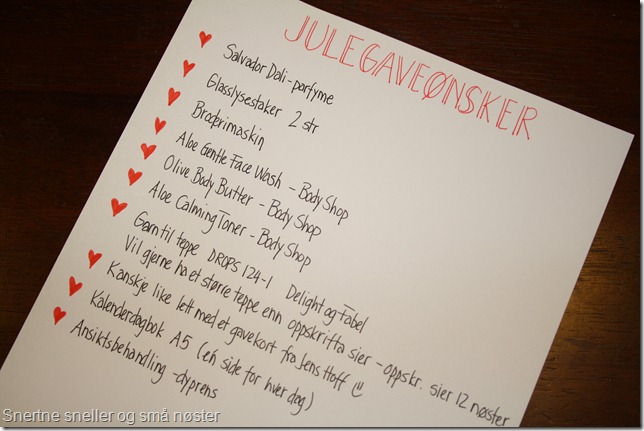 JULEGAVEØNSKER
Salvador Dali - parfyme
Glasslysestaker 2 str
Broderimaskin
Aloe Gentle Face Wash - Body Shop
Olive Body Butter - Body Shop
Aloe Calming Toner - Body Shop
Garn til teppe DROPS 124-1 Delight og Fabel
Vil gjerne ha et større teppe enn oppskrifta sier - oppskr. sier 12 nøster
Kanskje like lett med et gavekort fra Jens Hoff
Kalenderdagbok A5 (én side for hver dag)
Ansiktsbehandling - dyprens
Snertne sneller og små nøster